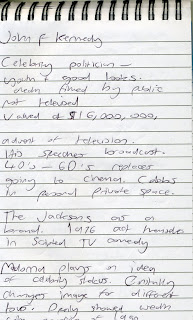 John F Kennedy
Celebrity politician -
youth & good looks.
death filmed by public
not televised
valued at $16,000,000
advent of television.
His speeches broadcast.
40's - 60's replaces
going to cinema. Celebs
in personal private space.
The Jacksons as a
brand. 1976 act themselves
in scripted TV comedy
Madonna plays on idea
of celebrity status. Constantly
changes image for different
tours. Openly showed